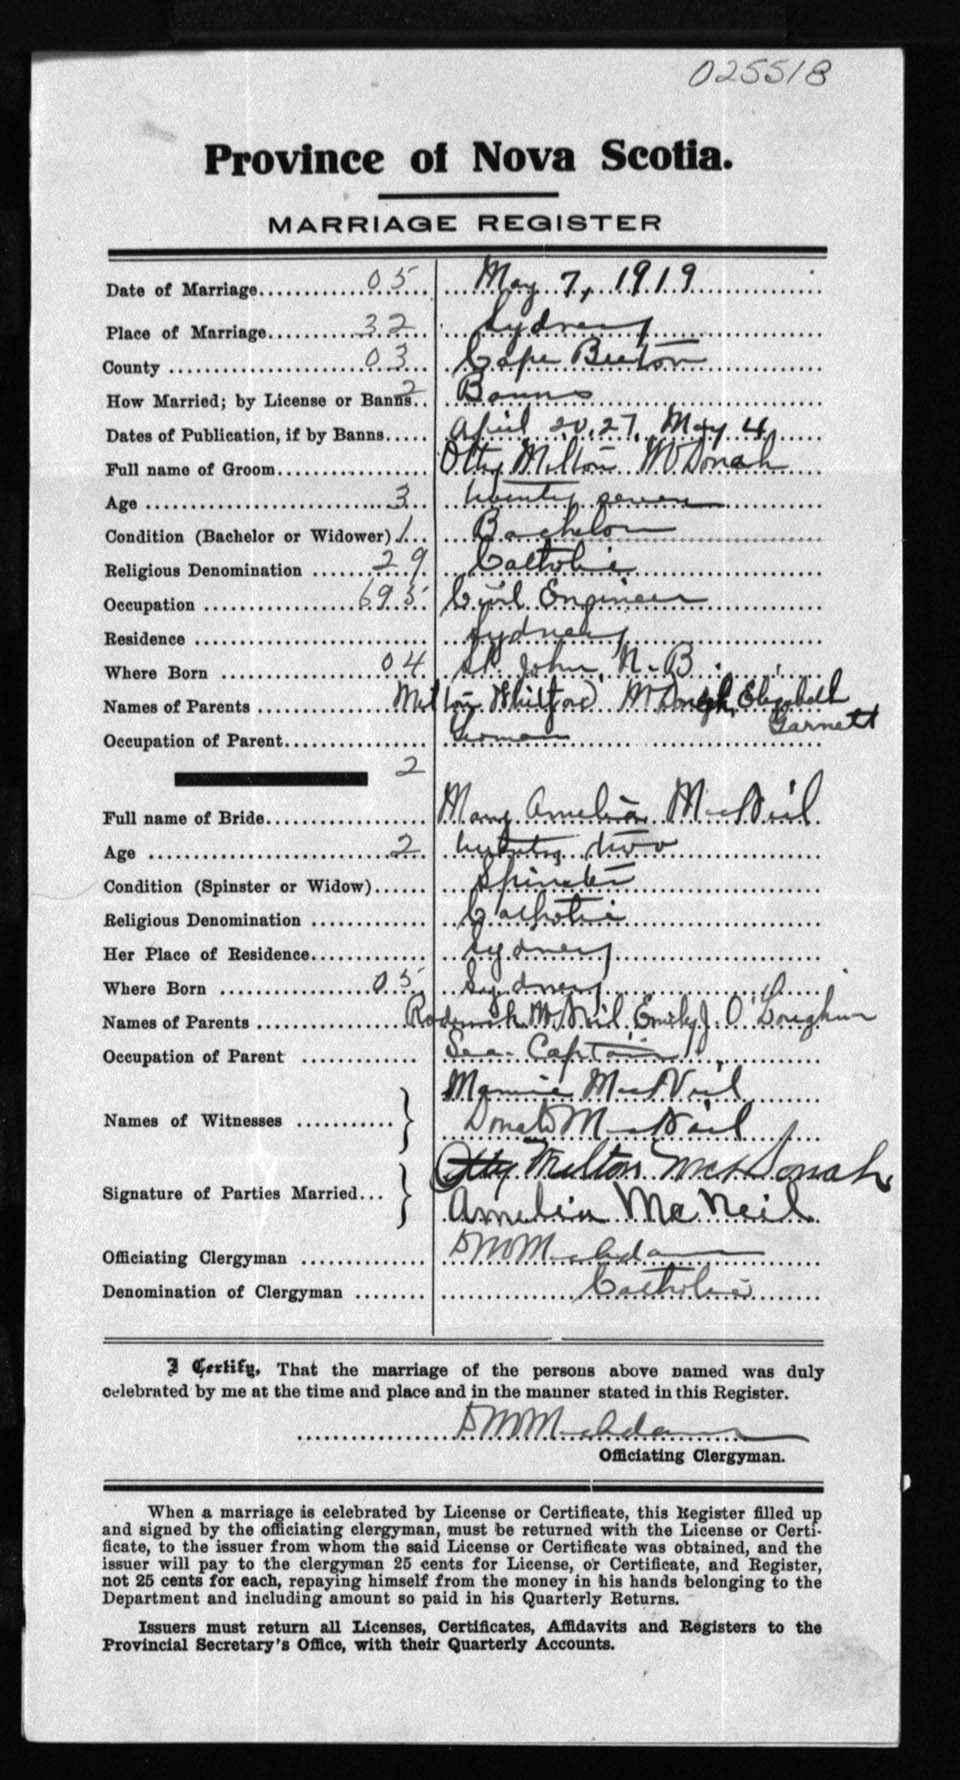 025518
Province of Nova Scotia.
MARRIAGE REGISTER
Date of Marriage 05 May 7, 1919
Place of Marriage 32 Sydney
County 03 Cape Breton
How Married; by License or Banns 2 Banns
Dates of Publication, if by Banns April 20, 27, May 4
Full name of Groom Otty Milton McDonah
Age 3 twenty seven
Condition (Bachelor or Widower) 1 Bachelor
Religious Denomination 29 Catholic
Occupation 695 Civil Engineer
Residence Sydney
Where Born 04 St. John, N.B.
Names of Parents Milton Whitford McDonah, Elizabeth Garnett
Occupation of Parent
2
Full name of Bride Mary Amelia MacNeil
Age 2 twenty two
Condition (Spinster or Widow) Spinster
Religious Denomination Catholic
Her Place of Residence Sydney
Where Born 05 Sydney
Names of Parents Roderick McNeil, Emily J. O'Loughlin
Occupation of Parent Sea-Captain
Names of Witnesses Mamie MacNeil
Donald MacNeil
Signature of Parties Married Otty Milton MacDonah
Amelia McNeil
Officiating Clergyman D M MacAdam
Denomination of Clergyman Catholic
I Certify, That the marriage of the persons above named was duly
celebrated by me at the time and place and in the manner stated in this Register.
D M MacAdam
Officiating Clergyman.
When a marriage is celebrated by License or Certificate, this Register filled up
and signed by the officiating clergyman, must be returned with the License or Certi-
ficate, to the issuer from whom the said License or Certificate was obtained, and the
issuer will pay to the clergyman 25 cents for License, or Certificate, and Register,
not 25 cents for each, repaying himself from the money in his hands belonging to the
Department and including amount so paid in his Quarterly Returns.
Issuers must return all Licenses, Certificates, Affidavits and Registers to the
Provincial Secretary's Office, with their Quarterly Accounts.